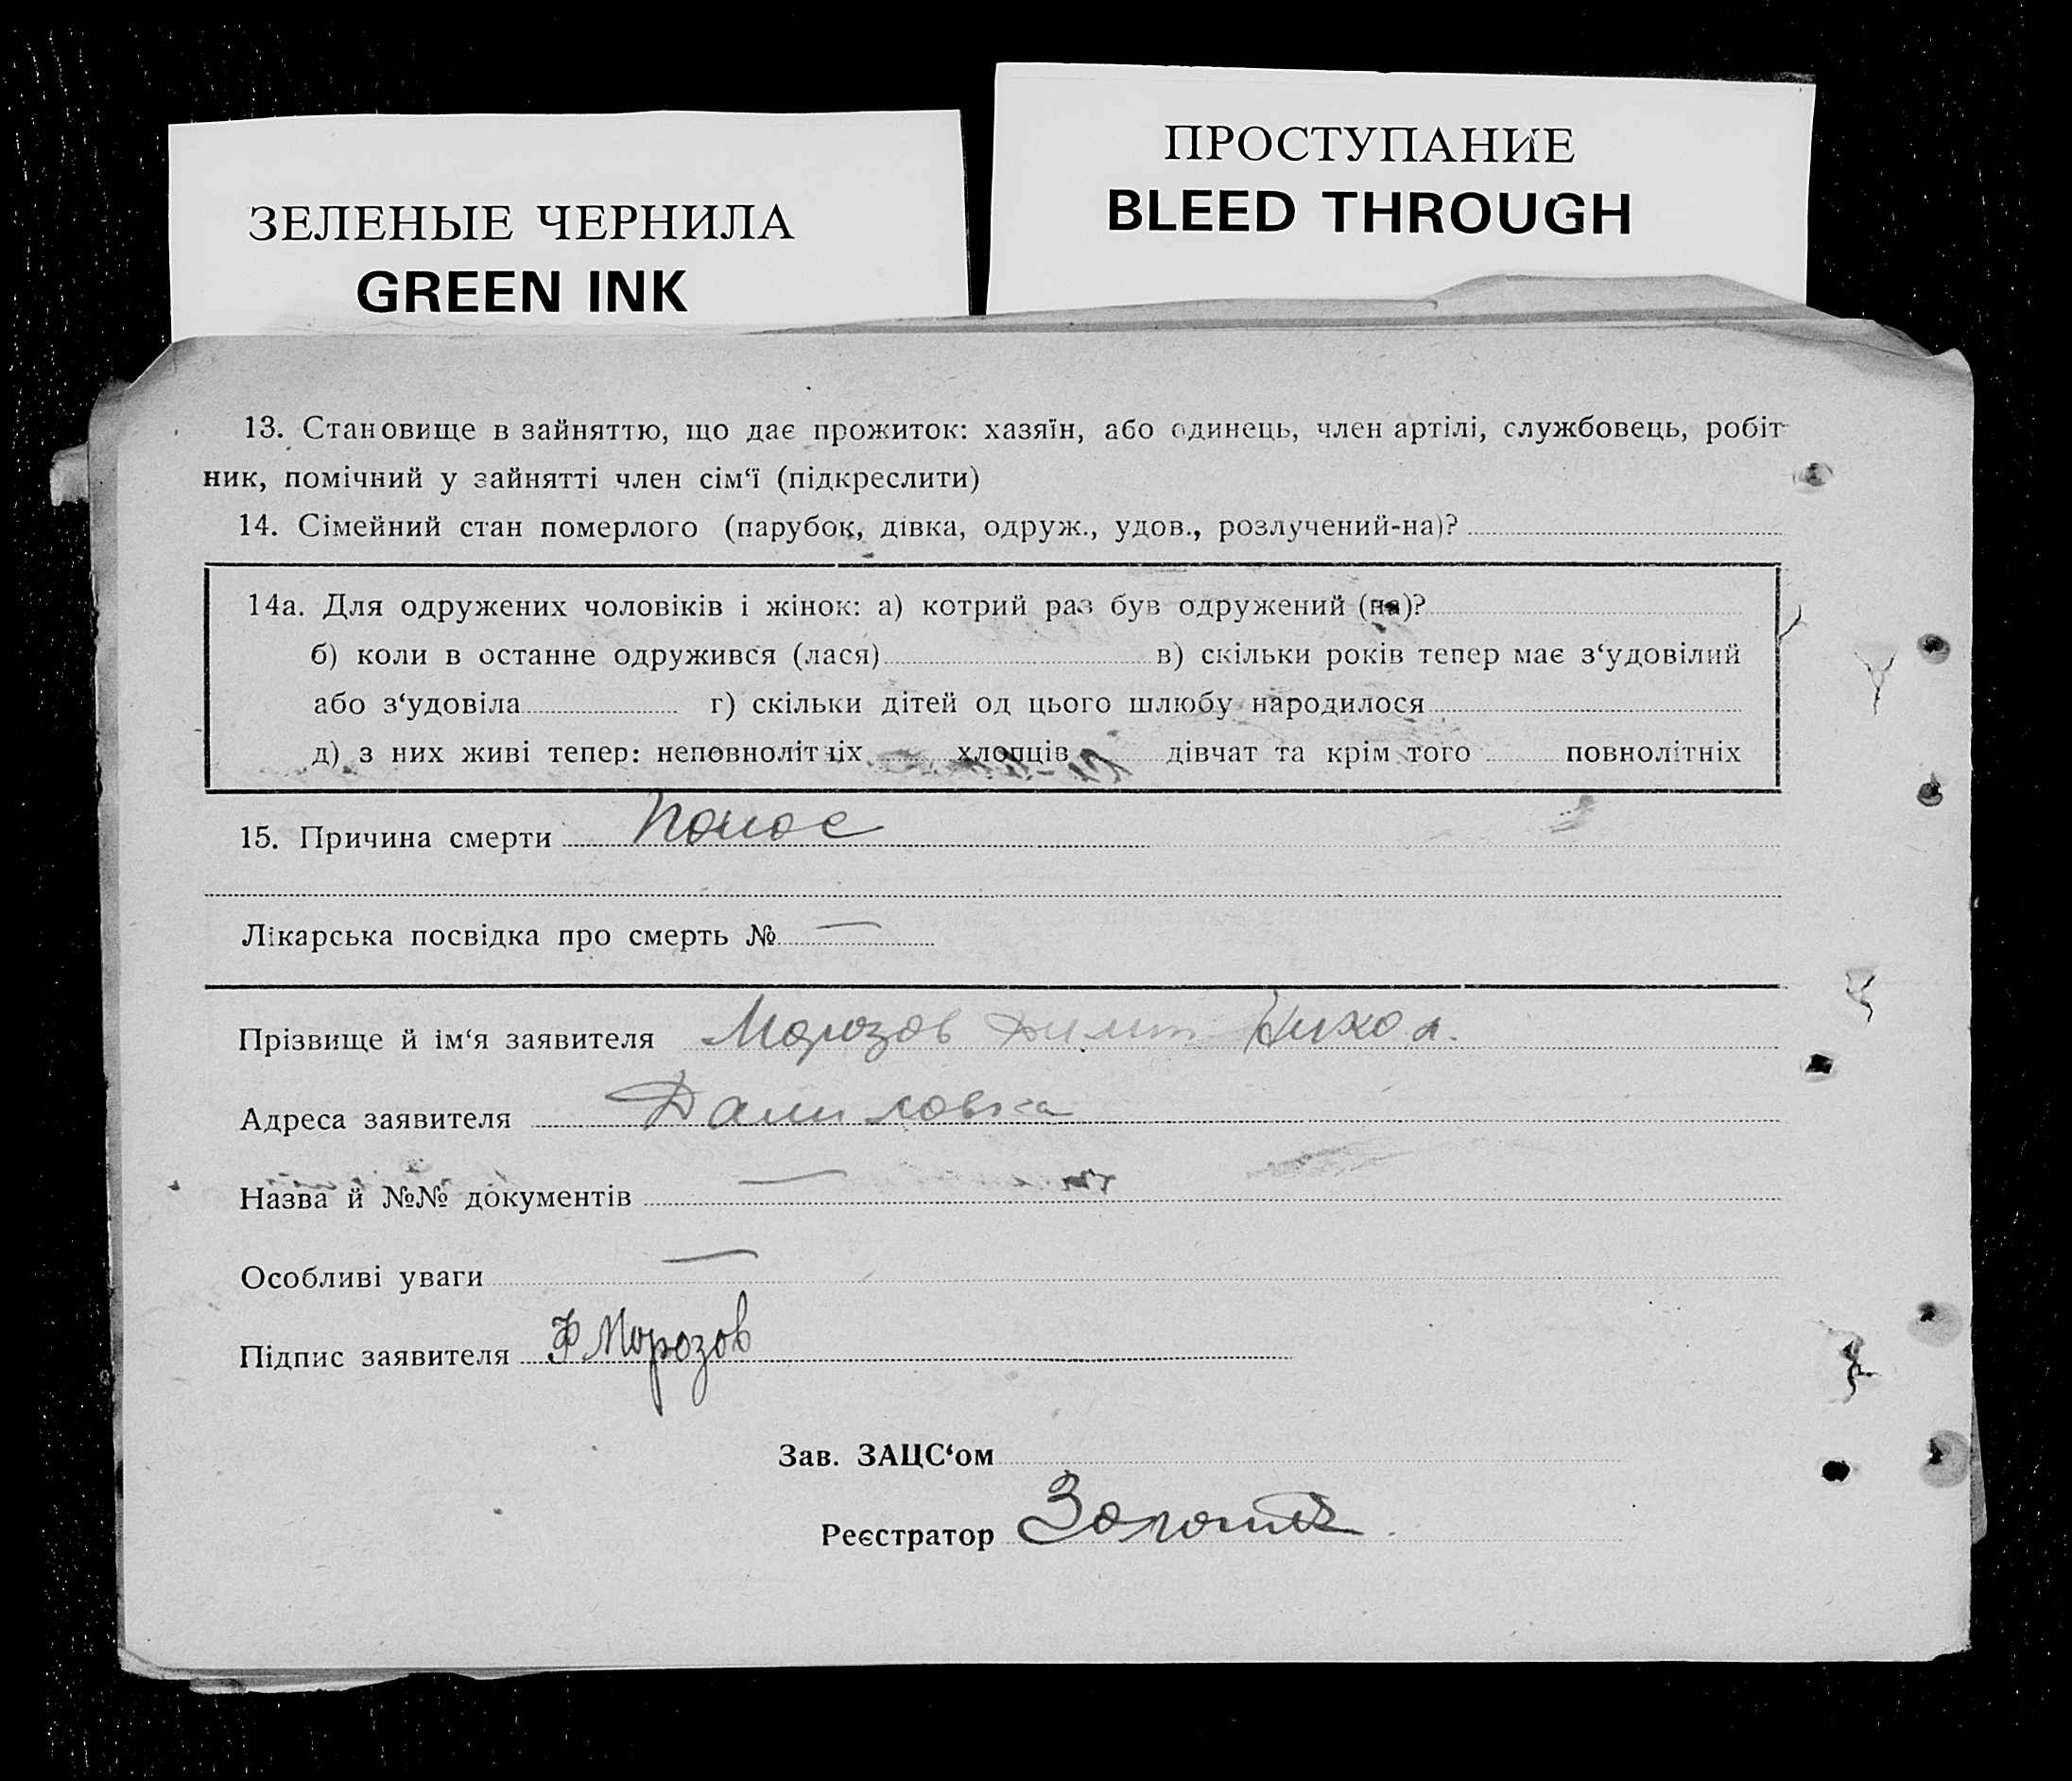 ЗЕЛЕНЫЕ ЧЕРНИЛА
GREEN INK
ПРОСТУПАНИЕ
BLEED THROUGH
13. Становище в зайняттю, що дає прожиток: хазяїн, або одинець, член артілі, службовець, робіт-
ник, помічний у зайнятті член сім‘ї (підкреслити)
14. Сімейний стан померлого (парубок, дівка, одруж., удов., розлучений-на)?
14а. Для одружених чоловіків і жінок: а) котрий раз був одружений (на)?
б) коли в останне одружився (лася) в) скільки років тепер має з‘удовілий
або з‘удовіла г) скільки дітей од цього шлюбу народилося
д) з них живі тепер: неповнолітніх хлопців дівчат та крім того повнолітніх
15. Причина смерти Понос
Лікарська посвідка про смерть № —
Прізвище й ім‘я заявителя Морозов Никол.
Адреса заявителя Даниловка
Назва й №№ документів —
Особливі уваги —
Підпис заявителя Морозов
Зав. ЗАЦС‘ом
Реєстратор